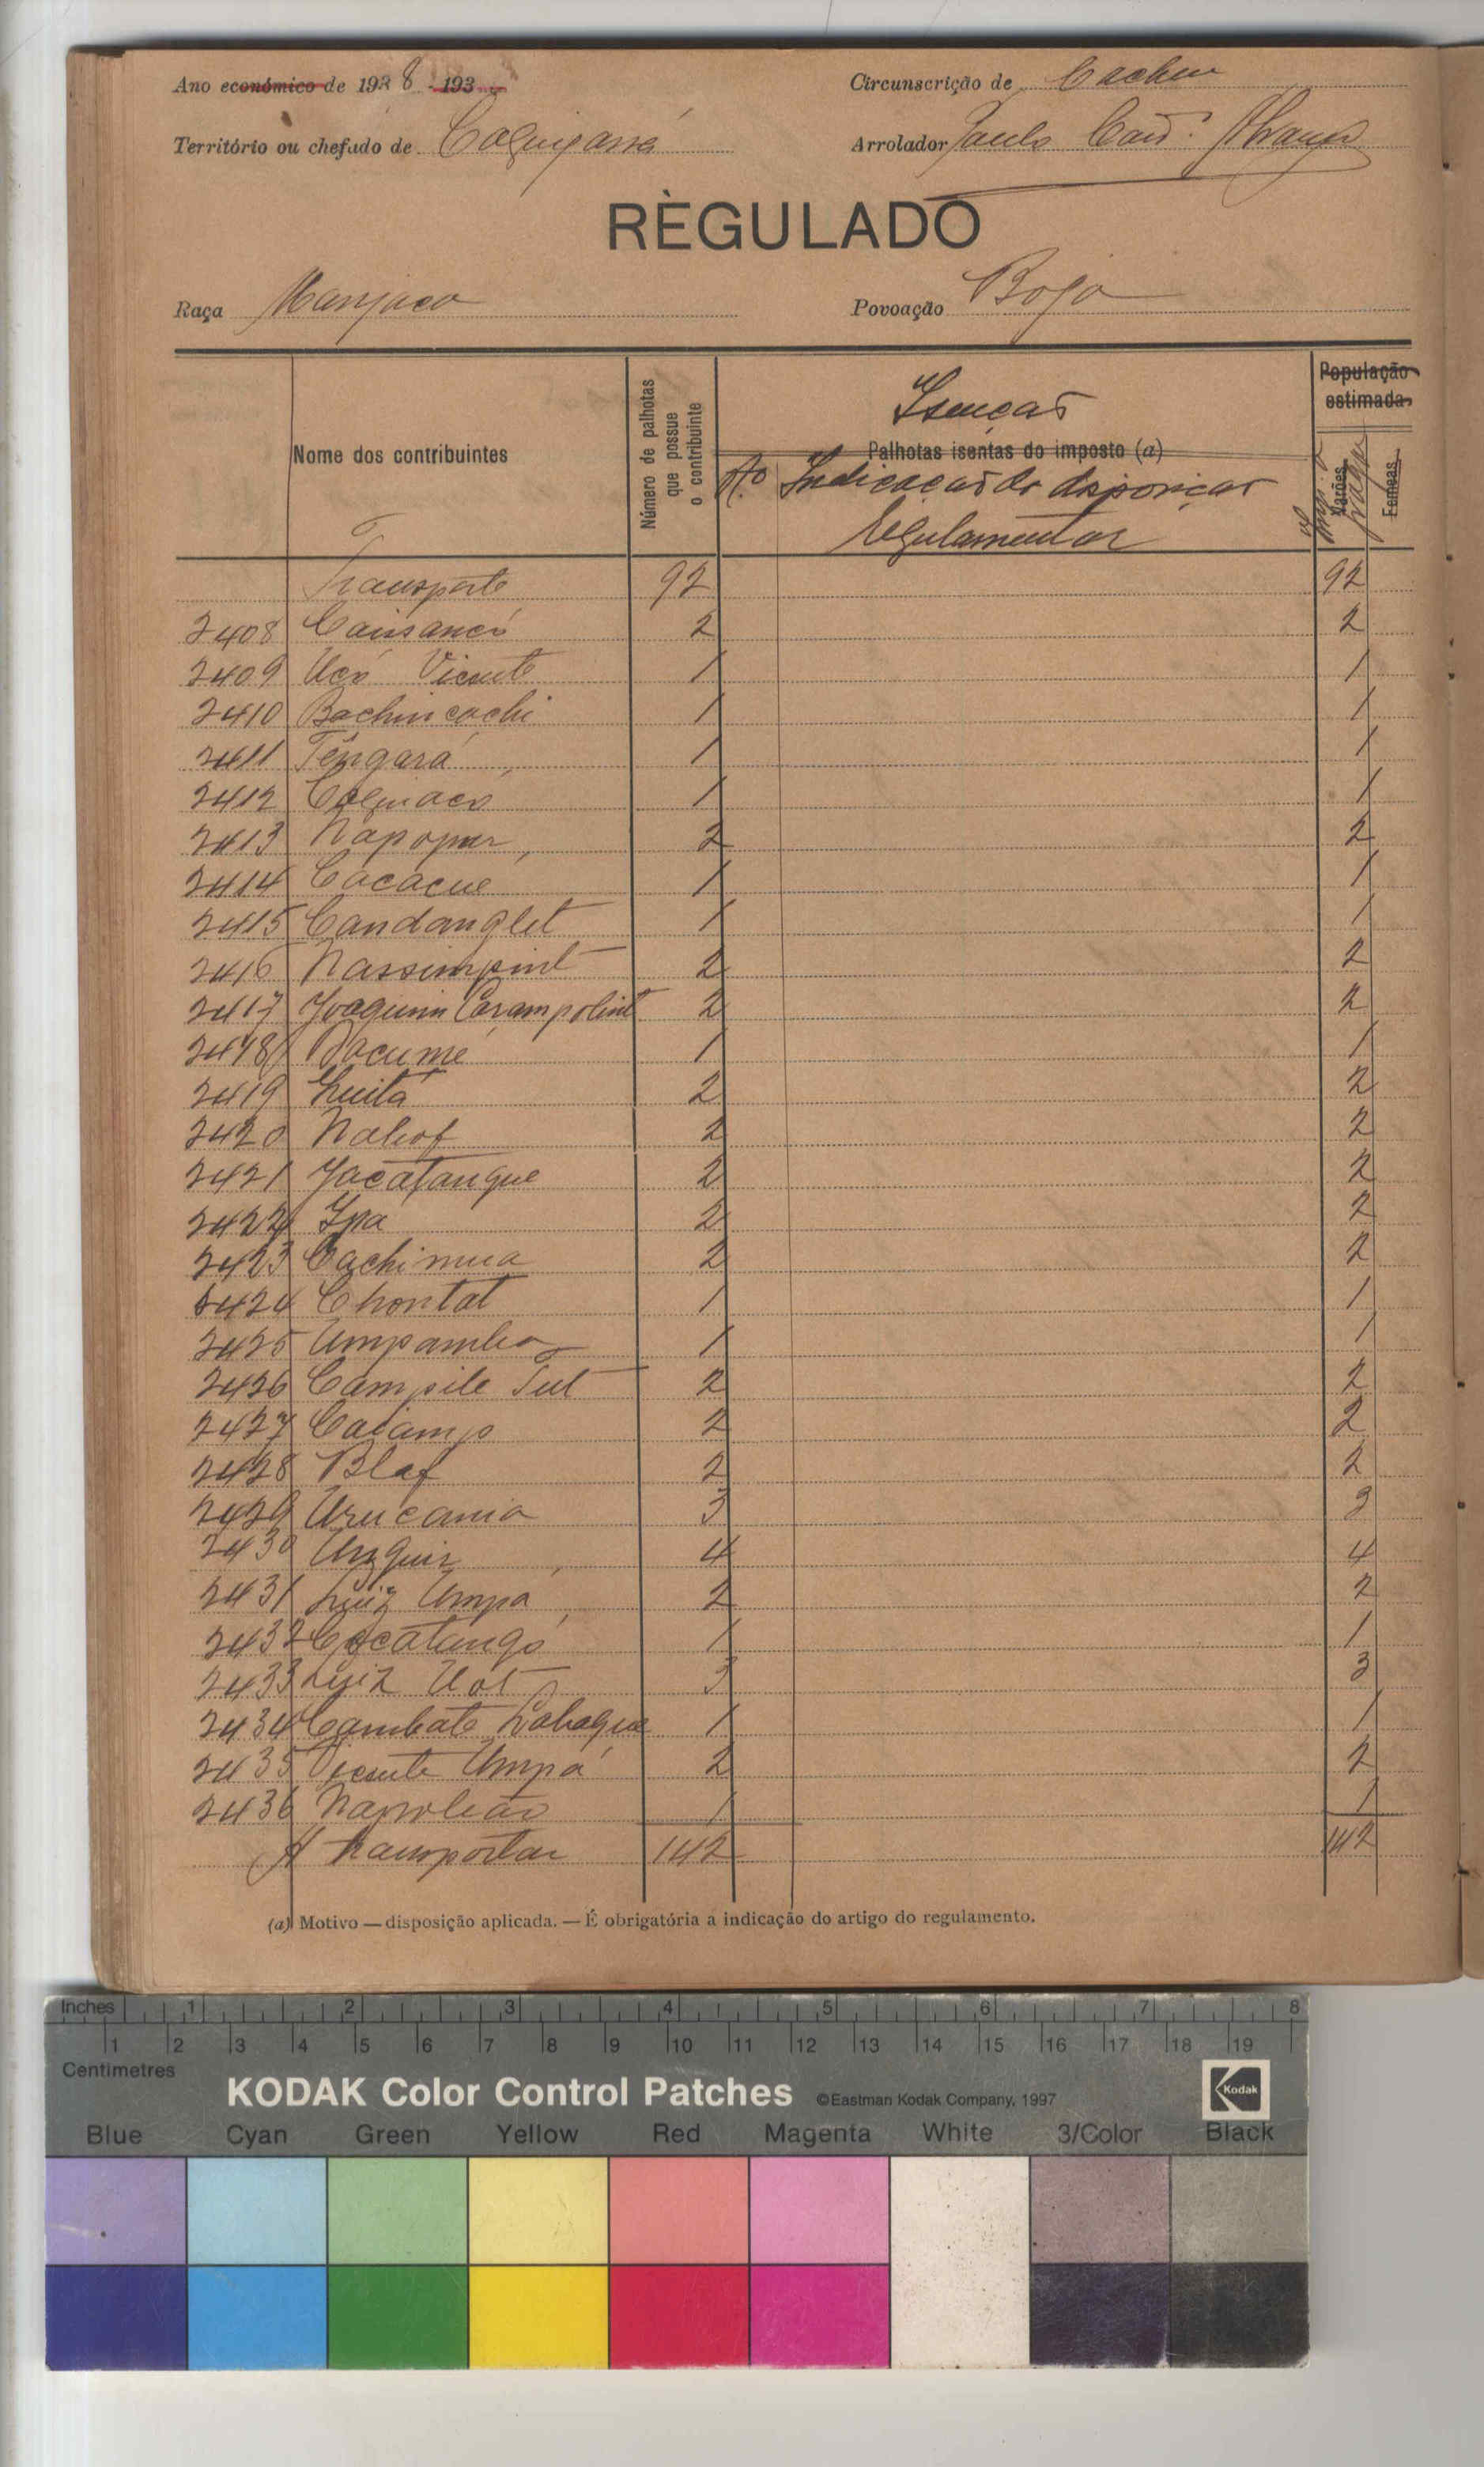 Ano económico de 1938 - 193
Circunscrição de Cacheu
Território ou chefado de Calquipassé
Arrolador Paulo
RÈGULADO
Raça Manjaco
Povoação Bojo
Nome dos contribuintes
Número de palhotas que possue o contribuinte
Isenção
Palhotas isentas do imposto (a)
Indicação da disposição
regulamentar
População estimada
Varões
Femeas
Transporte 92 92
2408 Caissancó 2 2
2409 Ucó Vicente 1 1
2410 Bachincachi 1 1
2411 Têngará 1 1
2412 1 1
2413 Napoper 2 2
2414 Cacacué 1 1
2415 Candanglet 1 1
2416 Nassimpint 2 2
2417 Joaquim Carampolint 2 2
2418 Pacumé 1 1
2419 Guitá 2 2
2420 Nahof 2 2
2421 Jacatangue 2 2
2422 Ipa 2 2
2423 Cachimua 2 2
2424 Chontat 1 1
2425 1 1
2426 Campile Tut 2 2
2427 Caiamp 2 2
2428 Blaf 2 2
2429 Urucania 3 3
2430 4 4
2431 Luiz Umpa 2 2
2432 Cocatangó 1 1
2433 Luiz Uot 3 3
2434 Cambate 1 1
2435 Vicente Umpá 2 2
2436 Napoleão 1 1
A transportar 142 142
(a) Motivo — disposição aplicada. — É obrigatória a indicação do artigo do regulamento.
Inches 1 2 3 4 5 6 7 8
1 2 3 4 5 6 7 8 9 10 11 12 13 14 15 16 17 18 19
Centimetres
KODAK Color Control Patches ©Eastman Kodak Company, 1997 Kodak
Blue Cyan Green Yellow Red Magenta White 3/Color Black